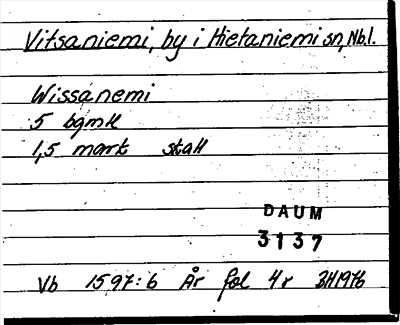 Vitsaniemi, by i Hietaniemi sn, Nb.l.
Wissanemi
5 bgmH
1,5 mark skatt
DAUM
3137
Vb 1597:6 År fol 4r BH1976